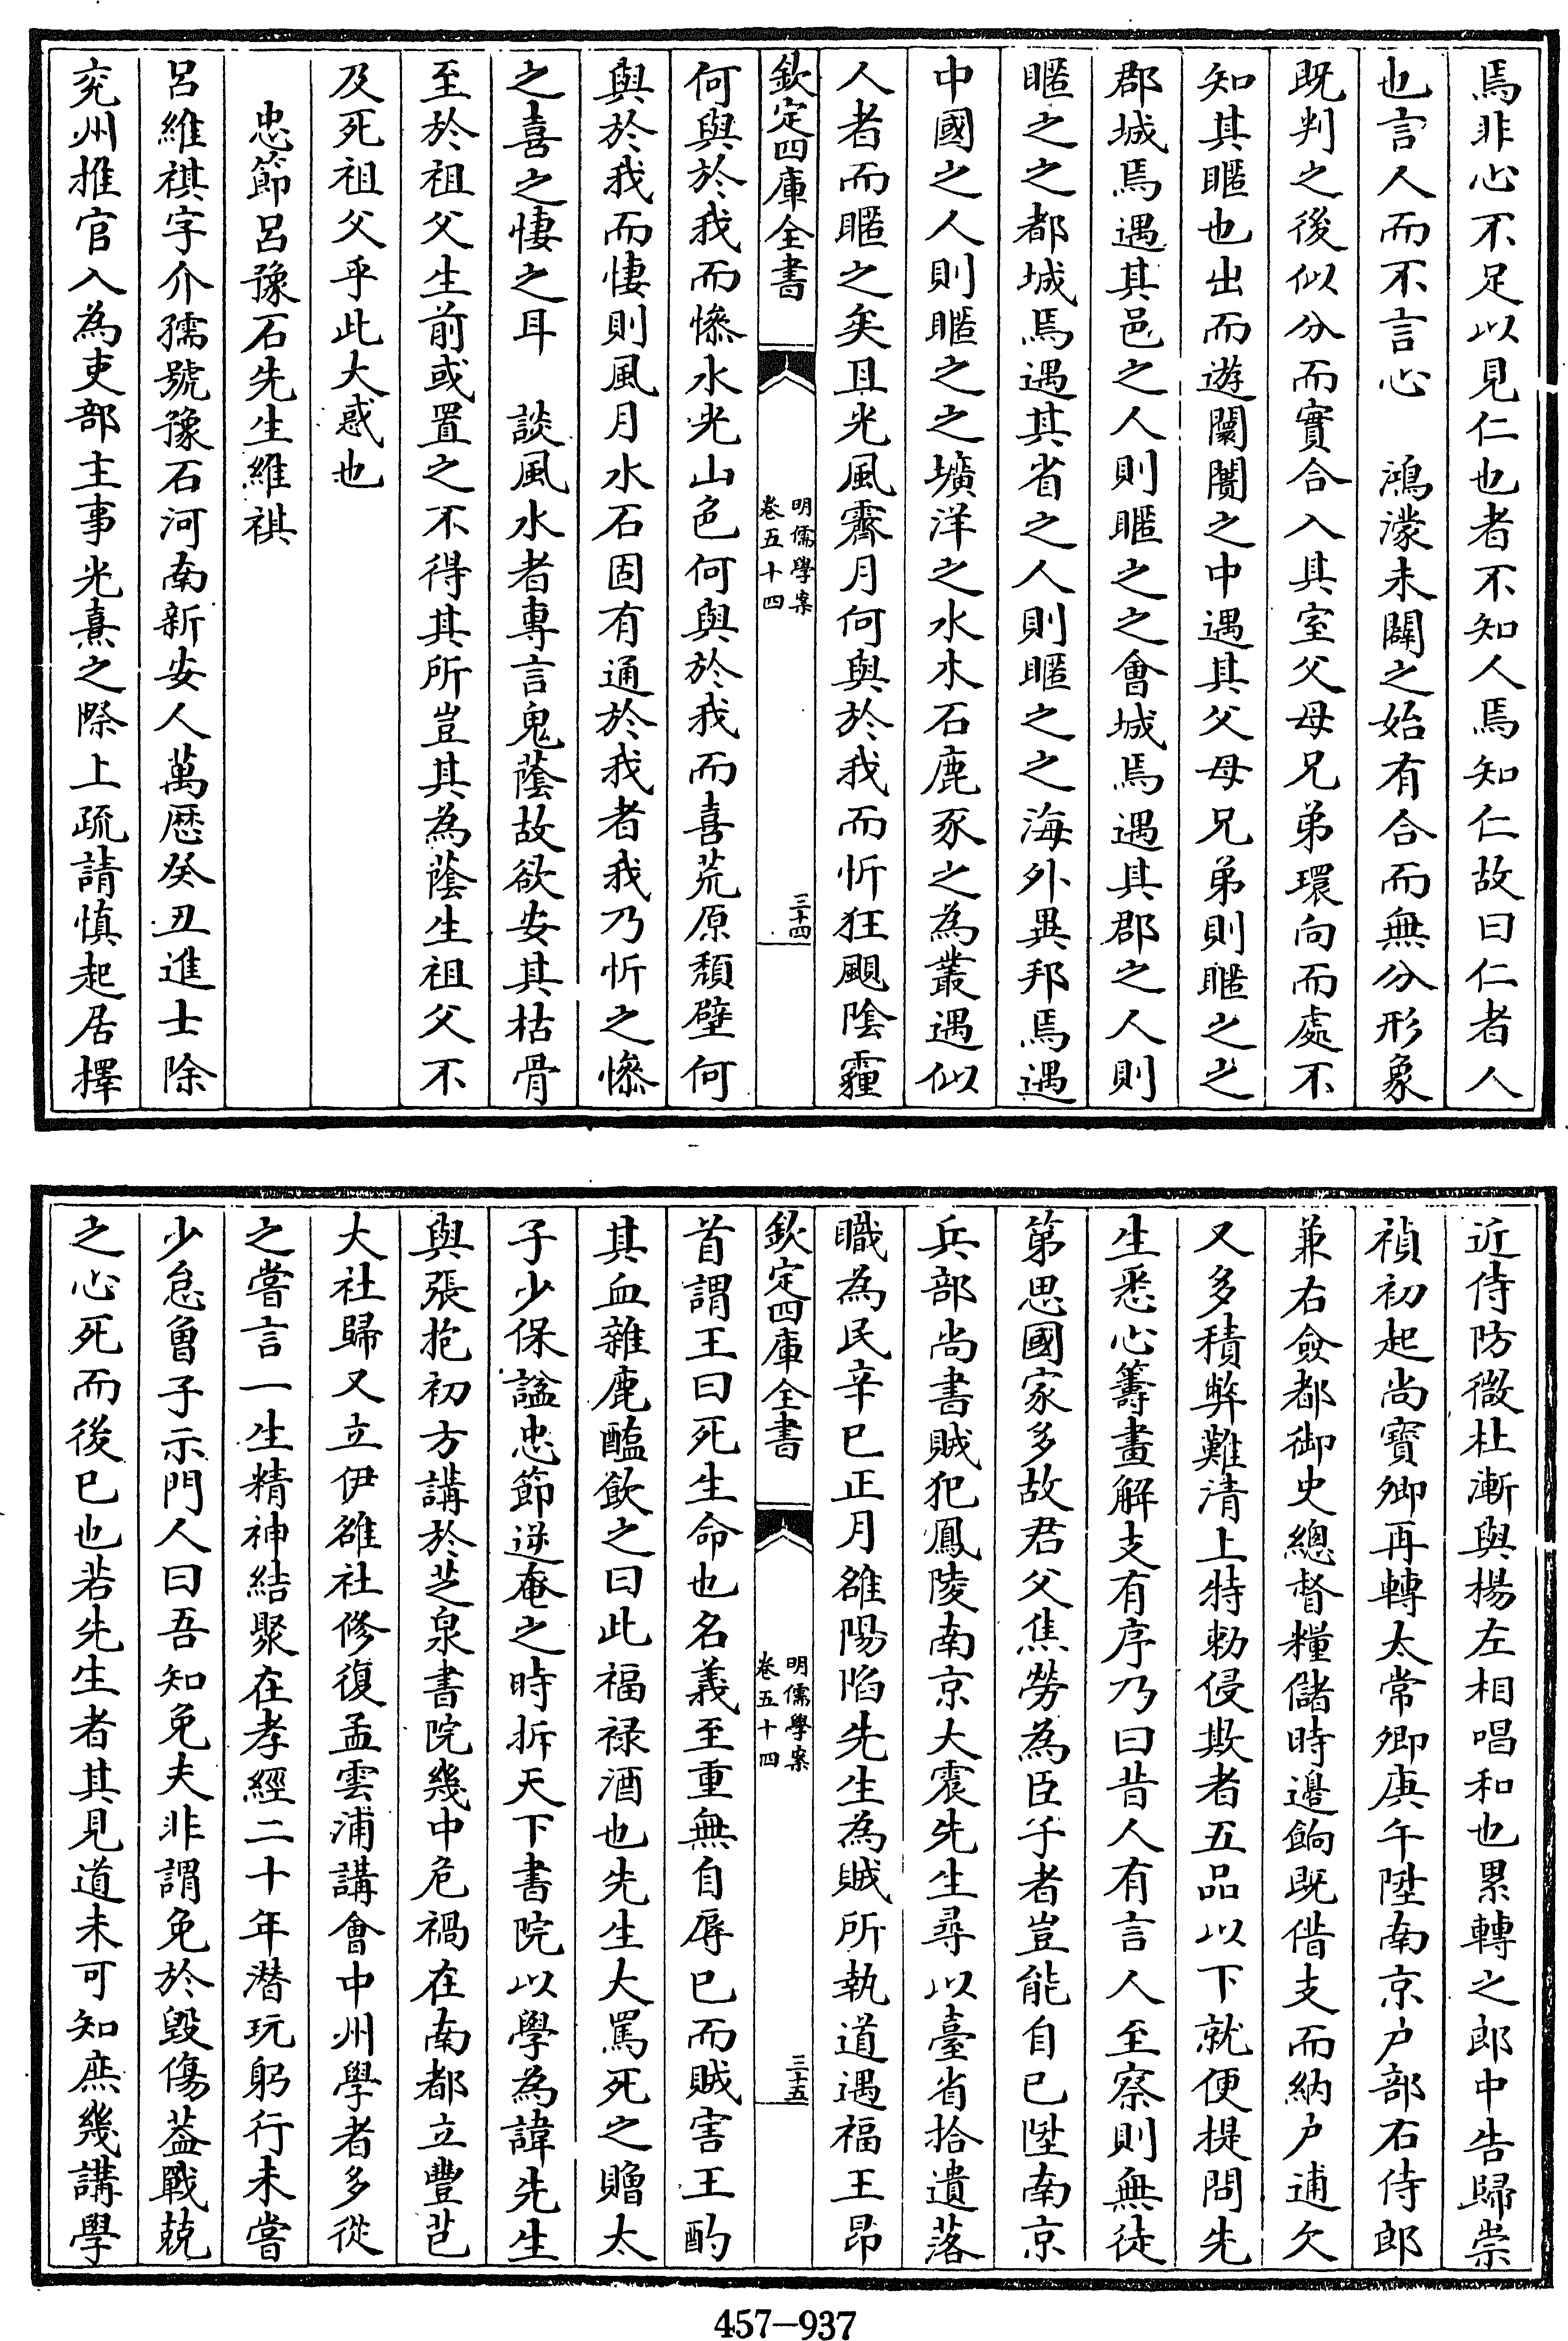 焉非心不足以見仁也者不知人焉知仁故曰仁者人
也言人而不言心　鴻濛未闢之始有合而無分形象
既判之後似分而實合入其室父母兄弟環向而處不
知其暱也出而遊闤闠之中遇其父母兄弟則暱之之
郡城焉遇其邑之人則暱之之會城焉遇其郡之人則
暱之之都城焉遇其省之人則暱之之海外異邦焉遇
中國之人則暱之之壙洋之水木石鹿豕之為叢遇似
人者而暱之矣且光風霽月何與於我而忻狂颶陰霾
欽定四庫全書
明儒學案
卷五十四
三十四
何與於我而慘水光山色何與於我而喜荒原頽壁何
與於我而悽則風月水石固有通於我者我乃忻之慘
之喜之悽之耳　談風水者專言鬼蔭故欲安其枯骨
至於祖父生前或置之不得其所豈其為蔭生祖父不
及死祖父乎此大惑也
忠節呂豫石先生維祺
呂維祺字介孺號豫石河南新安人萬厯癸丑進士除
兖州推官入為吏部主事光熹之際上疏請慎起居擇
近侍防微杜漸與楊左相唱和也累轉之郎中告歸崇
禎初起尚寶卿再轉太常卿庚午陞南京户部右侍郎
兼右僉都御史總督糧儲時邊餉既借支而納户逋欠
又多積弊難清上特勅侵欺者五品以下就便提問先
生悉心籌畫解支有序乃曰昔人有言人至察則無徒
第思國家多故君父焦勞為臣子者豈能自已陞南京
兵部尚書賊犯鳳陵南京大震先生尋以臺省拾遺落
職為民辛巳正月雒陽陷先生為賊所執道遇福王昂
欽定四庫全書
明儒學案
卷五十四
三十五
首謂王曰死生命也名義至重無自辱已而賊害王酌
其血雜鹿醢飲之曰此福禄酒也先生大罵死之贈太
子少保諡忠節逆奄之時拆天下書院以學為諱先生
與張抱初方講於芝泉書院幾中危禍在南都立豐芑
大社歸又立伊雒社修復孟雲浦講會中州學者多從
之嘗言一生精神結聚在孝經二十年潛玩躬行未嘗
少怠曾子示門人曰吾知免夫非謂免於毀傷葢戰兢
之心死而後已也若先生者其見道未可知庶幾講學
457—937